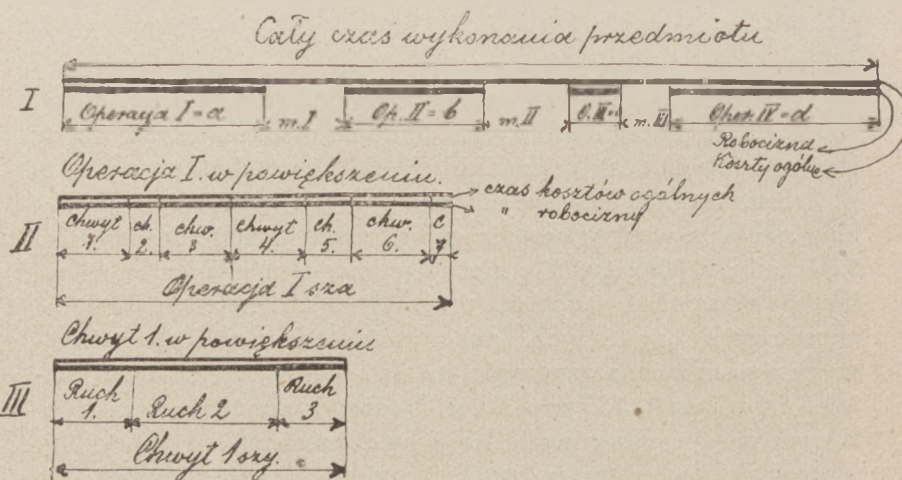 Cały czas wykonania przedmiotu
I
Operacja I = a m. I Op. II = b m. II O. III= m. III Oper. IV = d
Robocizna
Koszty ogólne
Operacja I. w powiększeniu.
czas kosztów ogólnych
" robocizny
II
chwyt 1. ch. 2. chw. 3 chwyt 4. ch. 5. chw. 6. C 7
Operacja I sza
Chwyt 1. w powiększeniu
III
Ruch 1. Ruch 2 Ruch 3
Chwyt 1 szy.